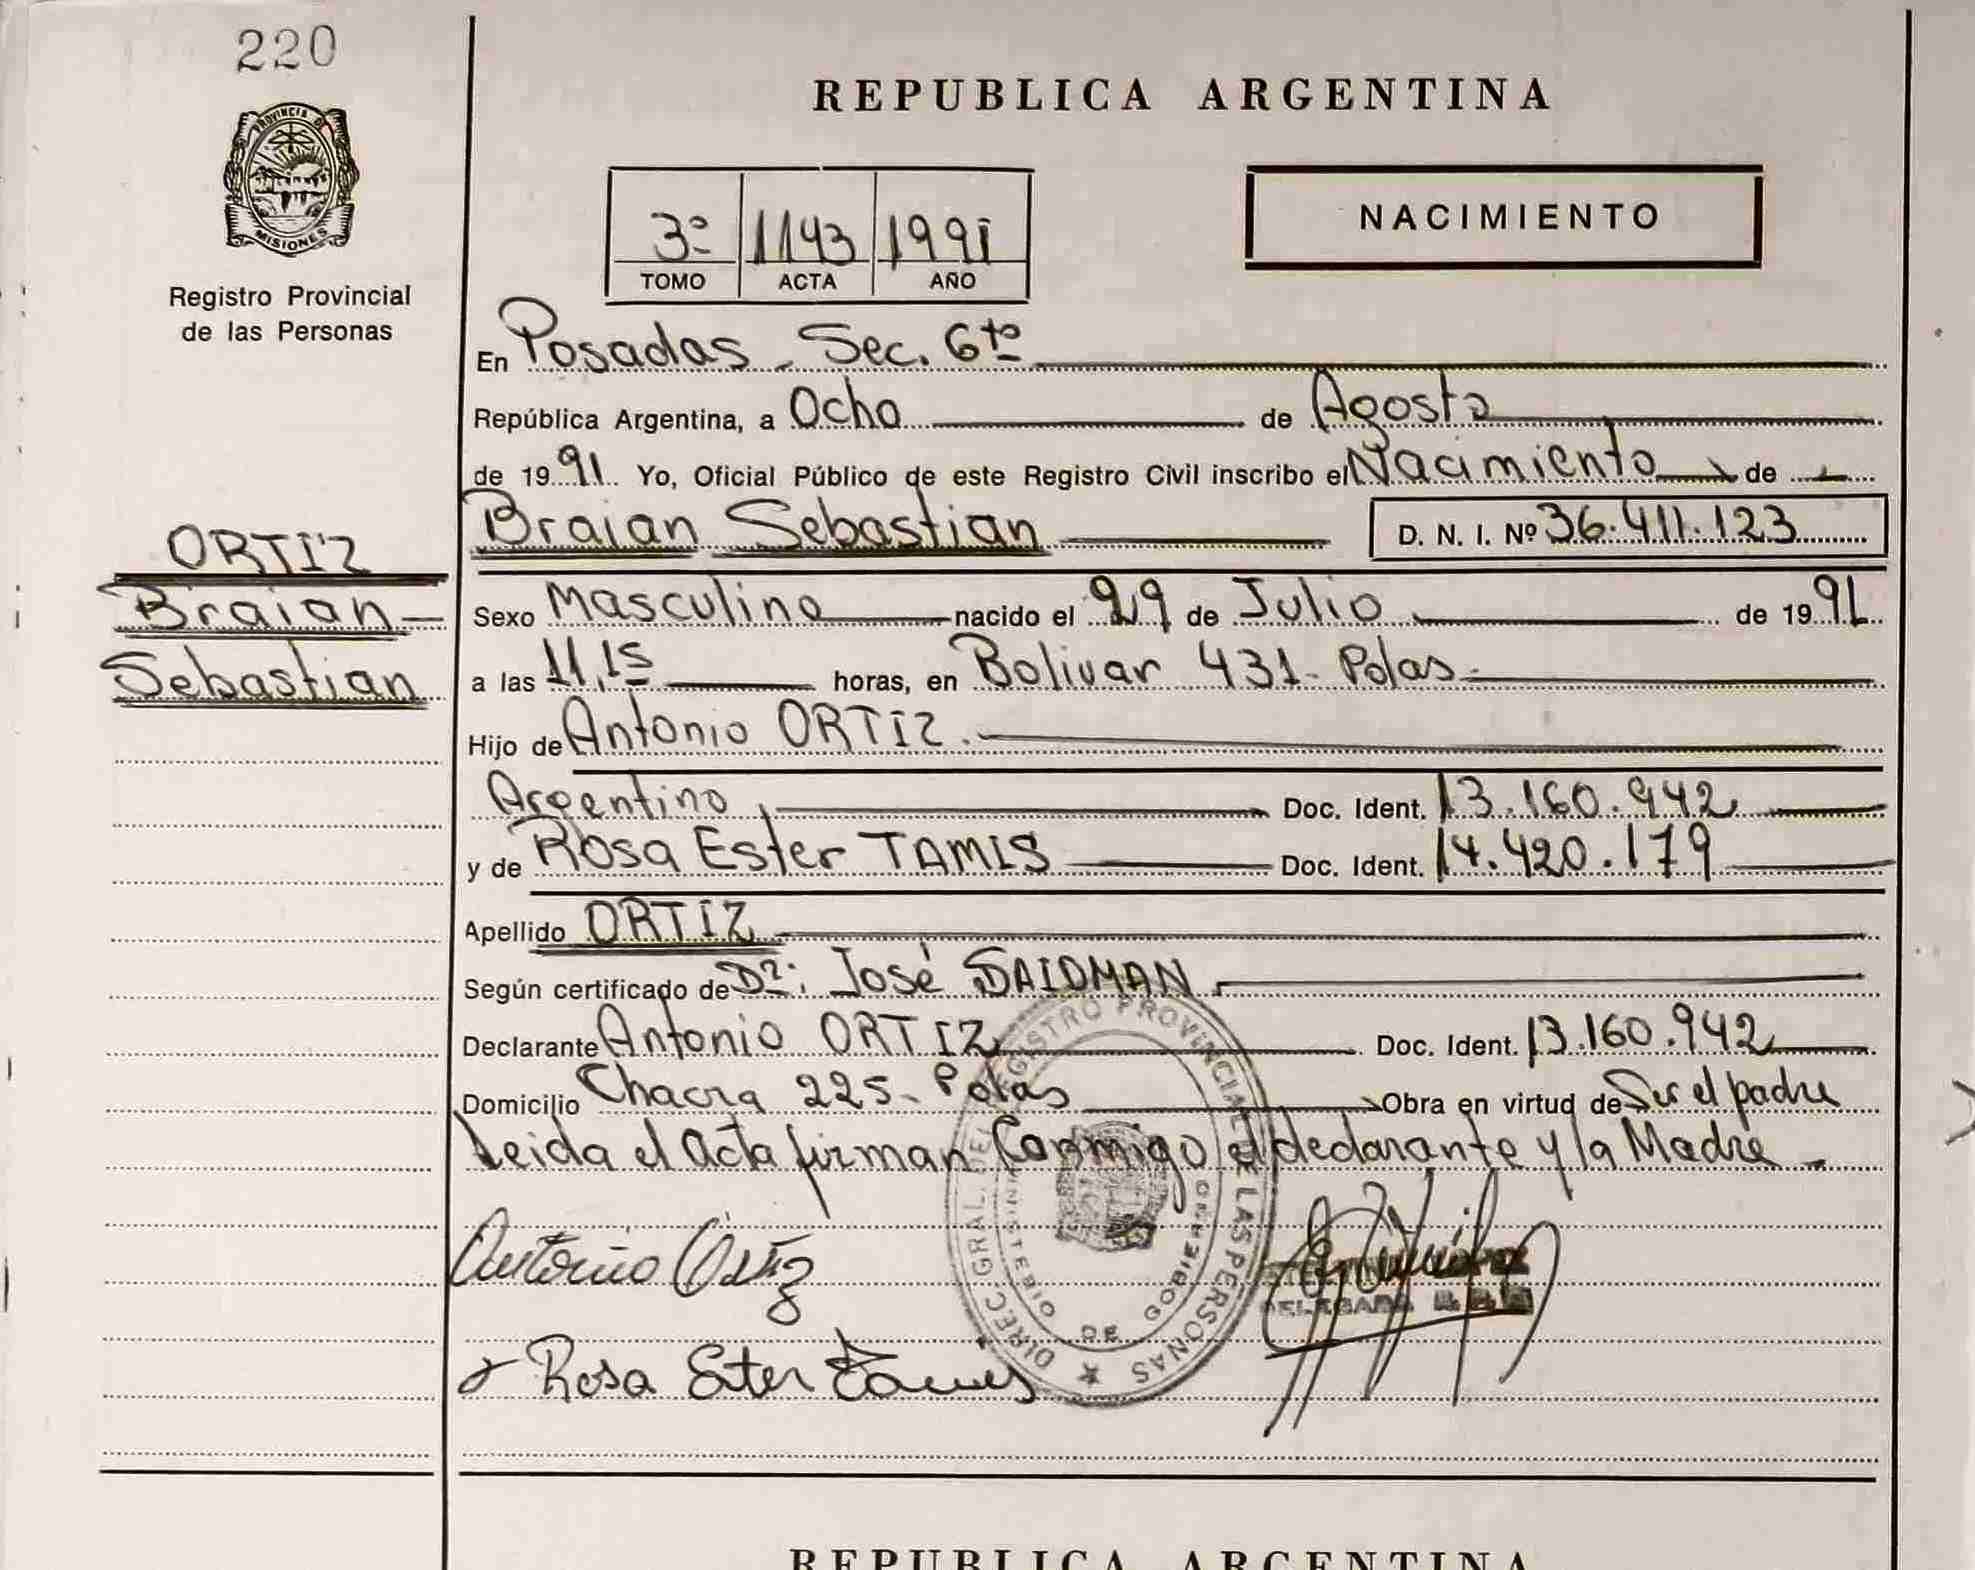 220
PROVINCIA DE
MISIONES
Registro Provincial
de las Personas
REPUBLICA ARGENTINA
3º 1143 1991
TOMO ACTA AÑO
NACIMIENTO
En Posadas - Sec. 6to
República Argentina, a Ocho de Agosto
de 1991 Yo, Oficial Público de este Registro Civil inscribo el Nacimiento de
Braian Sebastian D. N. I. Nº 36.411.123
ORTIZ
Braian
Sebastian
Sexo Masculino nacido el 29 de Julio de 1991
a las 11,15 horas, en Bolivar 431- Pdas
Hijo de Antonio ORTIZ.
Argentino, Doc. Ident. 13.160.942
y de Rosa Ester TAMIS Doc. Ident. 14.420.179
Apellido ORTIZ
Según certificado de Dr: José SAIDMAN
Declarante Antonio ORTIZ Doc. Ident. 13.160.942
Domicilio Chacra 225- Pdas Obra en virtud de Ser el padre
Leida el Acta firman Conmigo el declarante y la Madre -
Antonio Ortiz
Rosa Ester Tamis
DIREC. GRAL. DEL REGISTRO PROVINCIAL DE LAS PERSONAS
MINISTERIO DE GOBIERNO
DELEGADA
REPUBLICA ARGENTINA